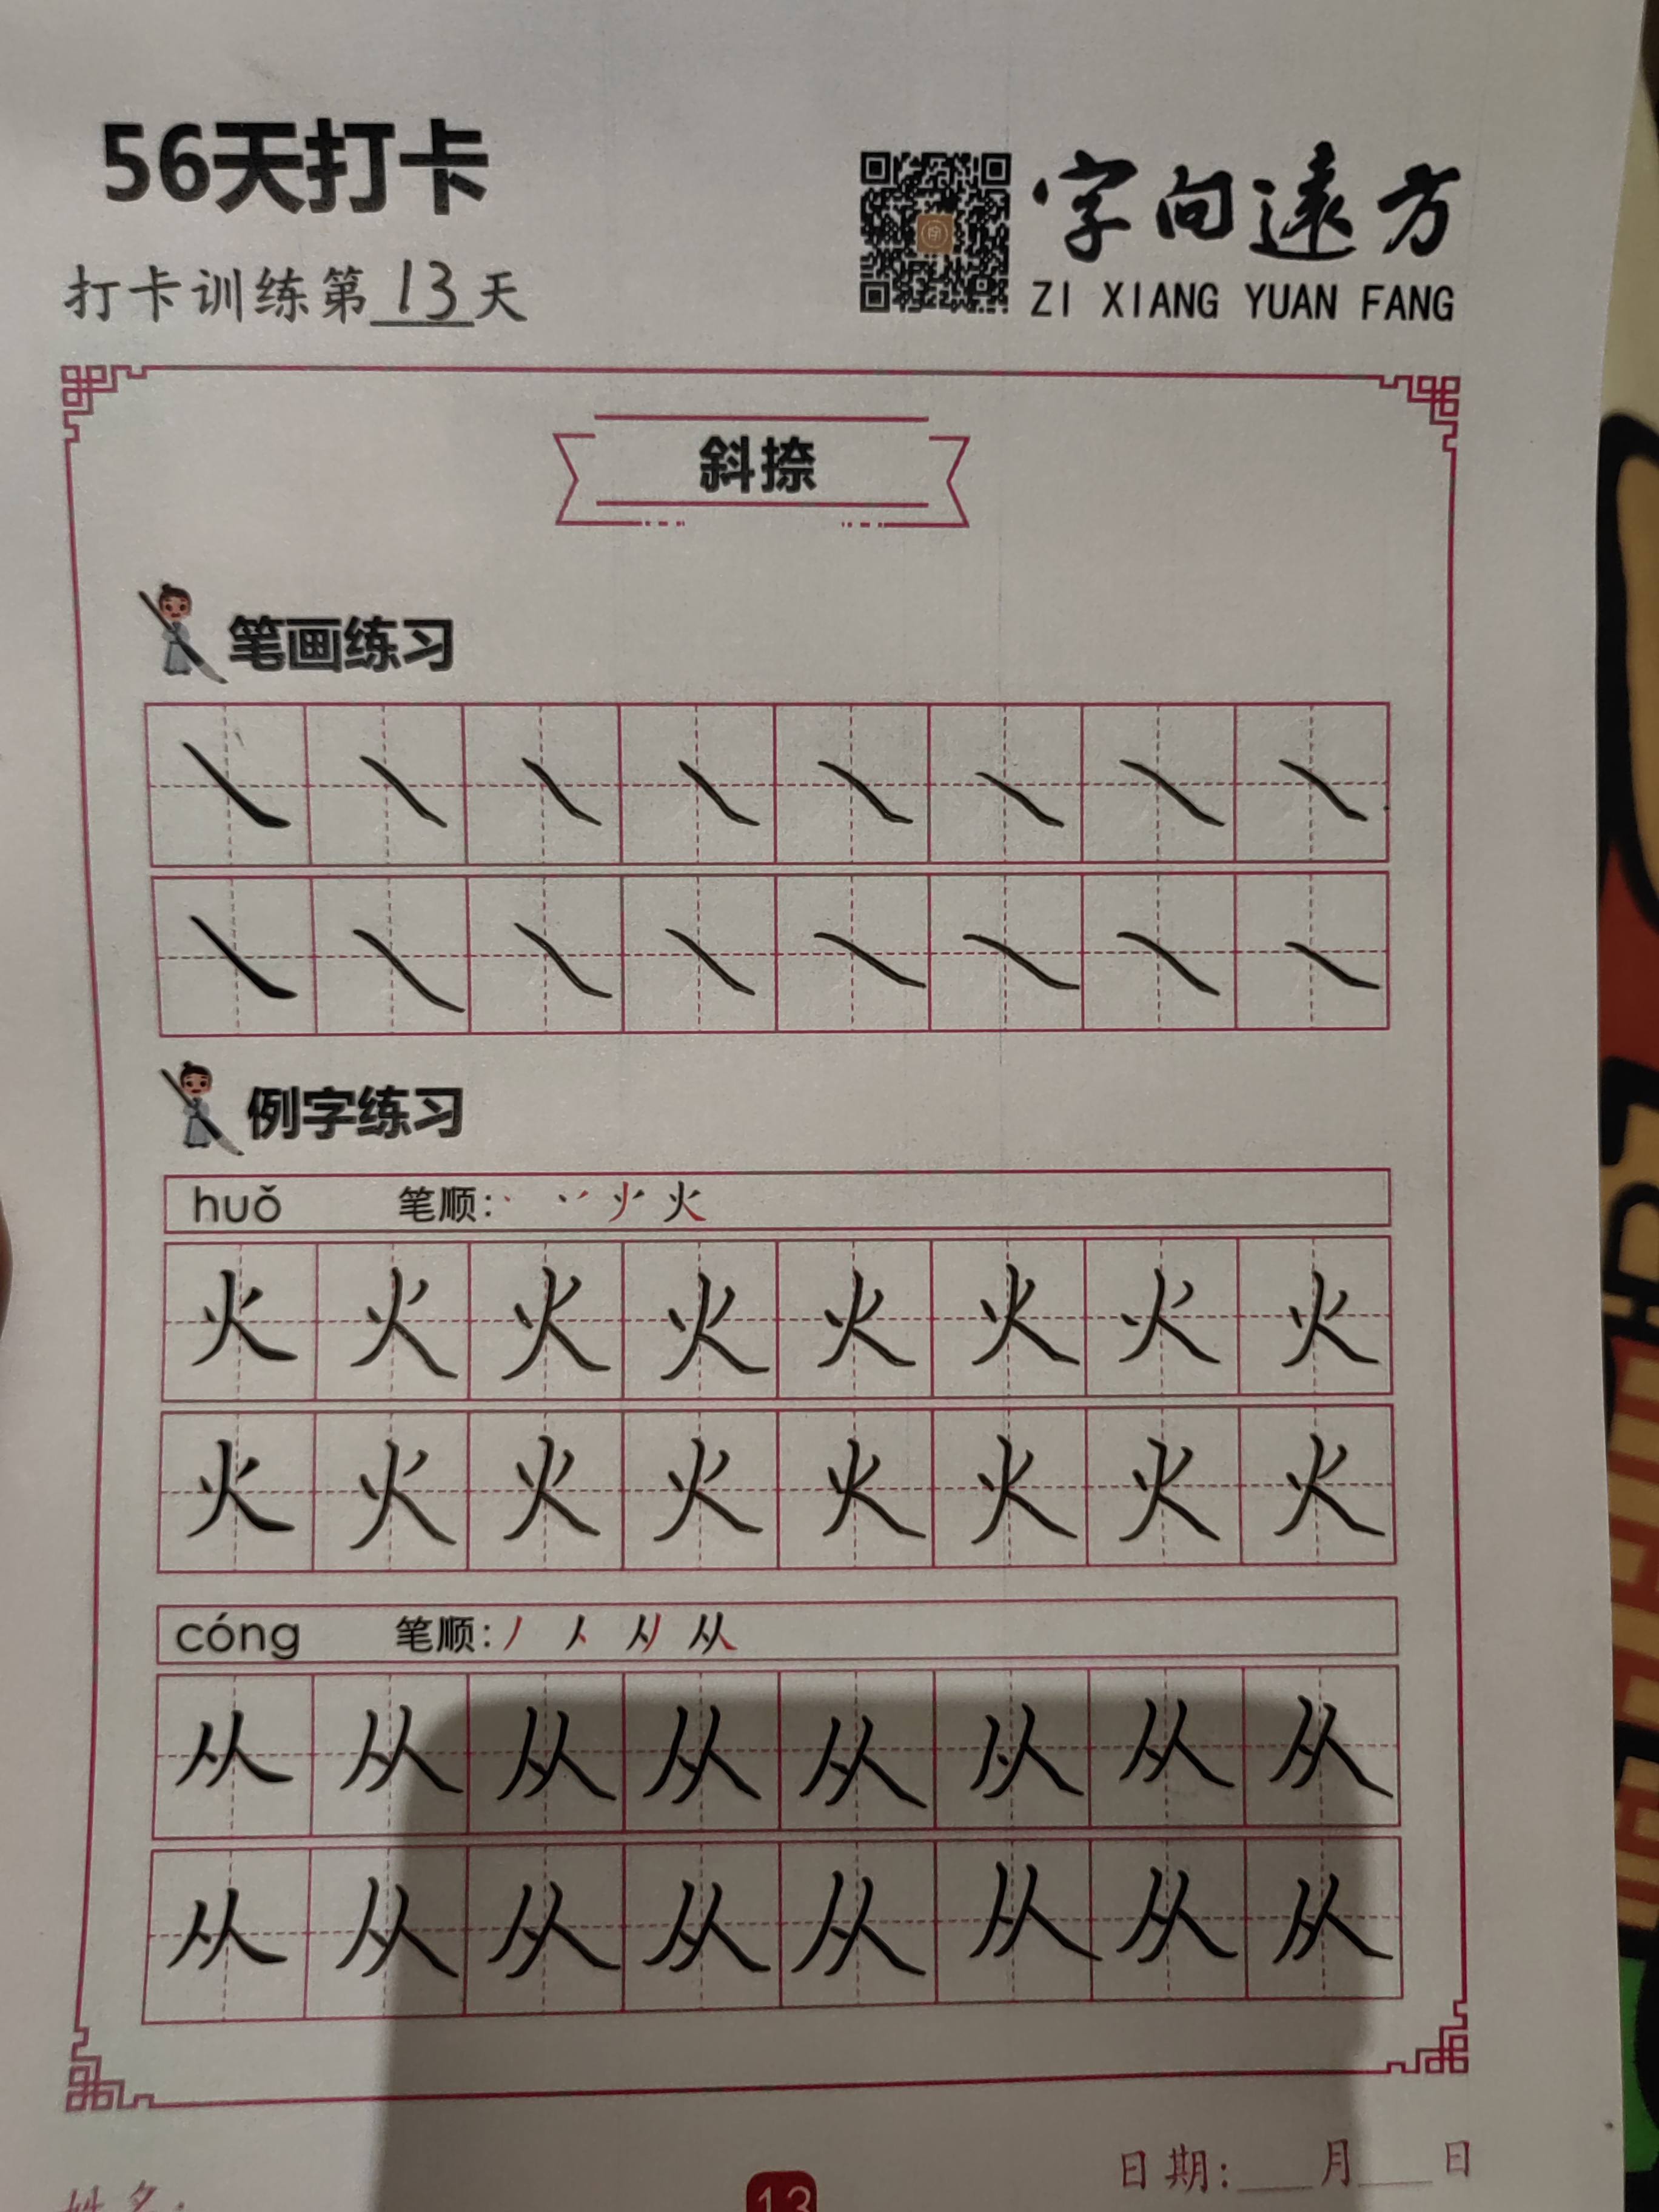 56天打卡
字向遠方
ZI XIANG YUAN FANG
打卡训练第13天
斜捺
笔画练习
例字练习
huǒ 笔顺: 火
火 火 火 火 火 火 火 火
火 火 火 火 火 火 火 火
cóng 笔顺: 从
从 从 从 从 从 从 从 从
从 从 从 从 从 从 从 从
日期:___月___日
姓名:
13